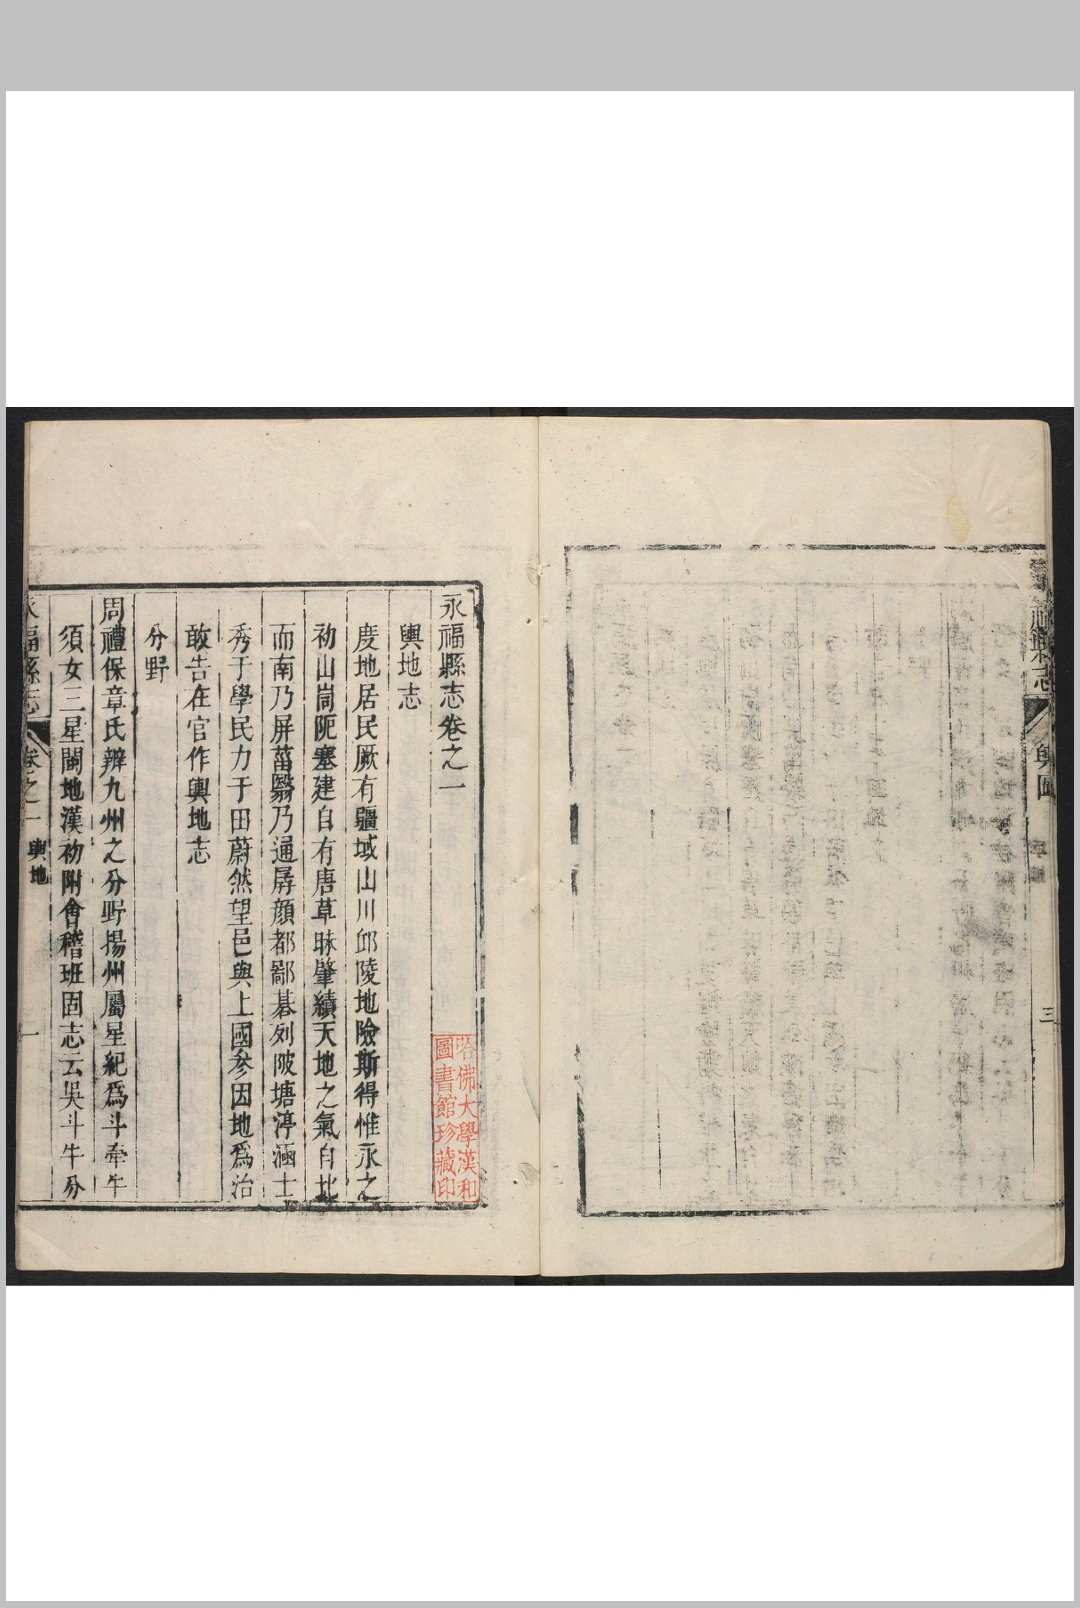 福縣志
輿圖
三
永福縣志卷之一
輿地志
度地居民厥有疆域山川邱陵地險斯得惟永之
初山崗阨塞建自有唐草昧肇績天地之氣自北
而南乃屏菑翳乃通孱顔都鄙碁列陂塘渟涵士
秀于學民力于田蔚然望邑與上國參因地爲治
敢告在官作輿地志
分野
周禮保章氏辨九州之分野揚州屬星紀爲斗牽牛
須女三星閩地漢初附會稽班固志云吳斗牛分
永福縣志
卷之一
輿地
一
哈佛大學漢和
圖書館珍藏印